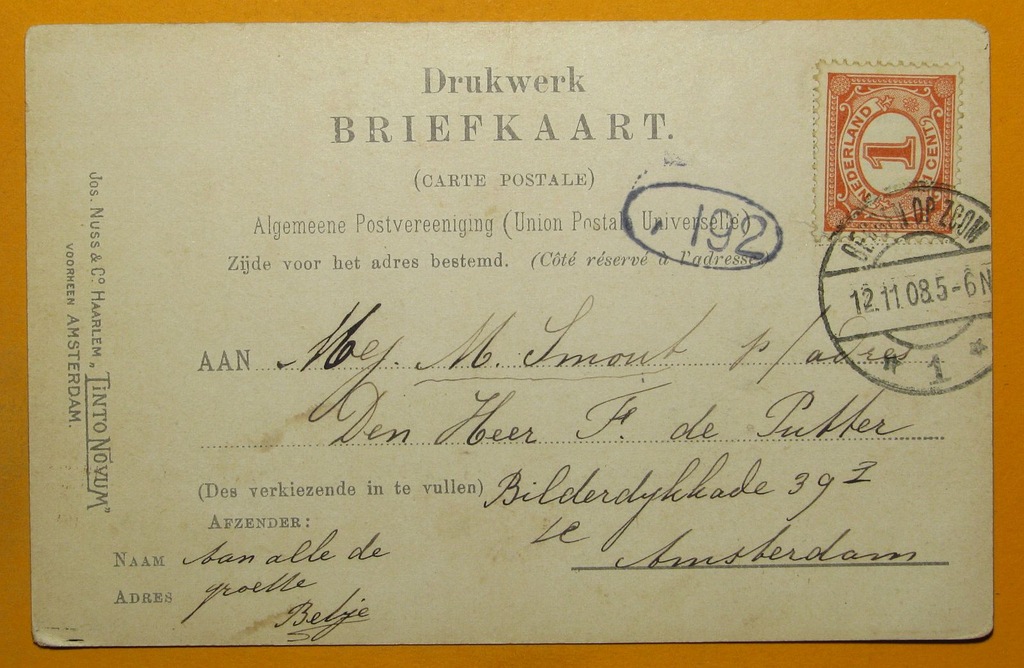 Drukwerk
BRIEFKAART.
(CARTE POSTALE)
Algemeene Postvereeniging (Union Postale Universelle)
Zijde voor het adres bestemd. (Côté réservé à l'adresse
192
NEDERLAND
1
1 CENT
BERGEN OP ZOOM
12.11.08.5-6N
1
AAN Mej. M. Smout p/adres
Den Heer F. de Putter
(Des verkiezende in te vullen) Bilderdykkade 39 I
AFZENDER:
te Amsterdam
NAAM Aan alle de
ADRES groette
Betje
Jos. Nuss & Co. Haarlem „Tinto Novum"
VOORHEEN AMSTERDAM.